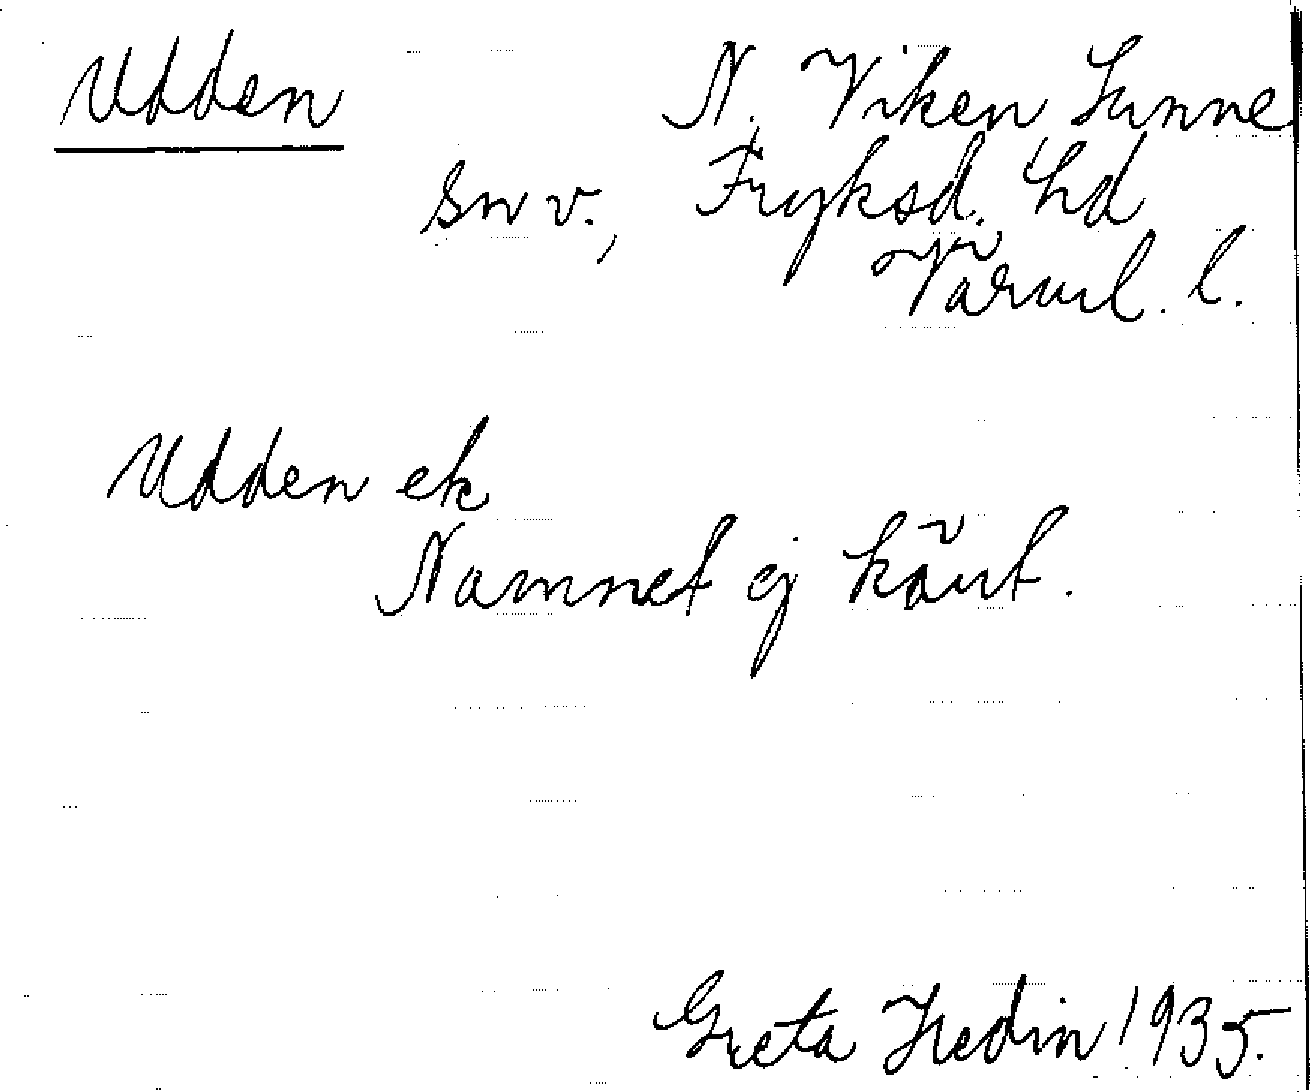 Udden N. Viken Sunne
snv., Fryksd. hd
Värml. l.
Udden ek
Namnet ej känt.
Greta Hedin 1935.